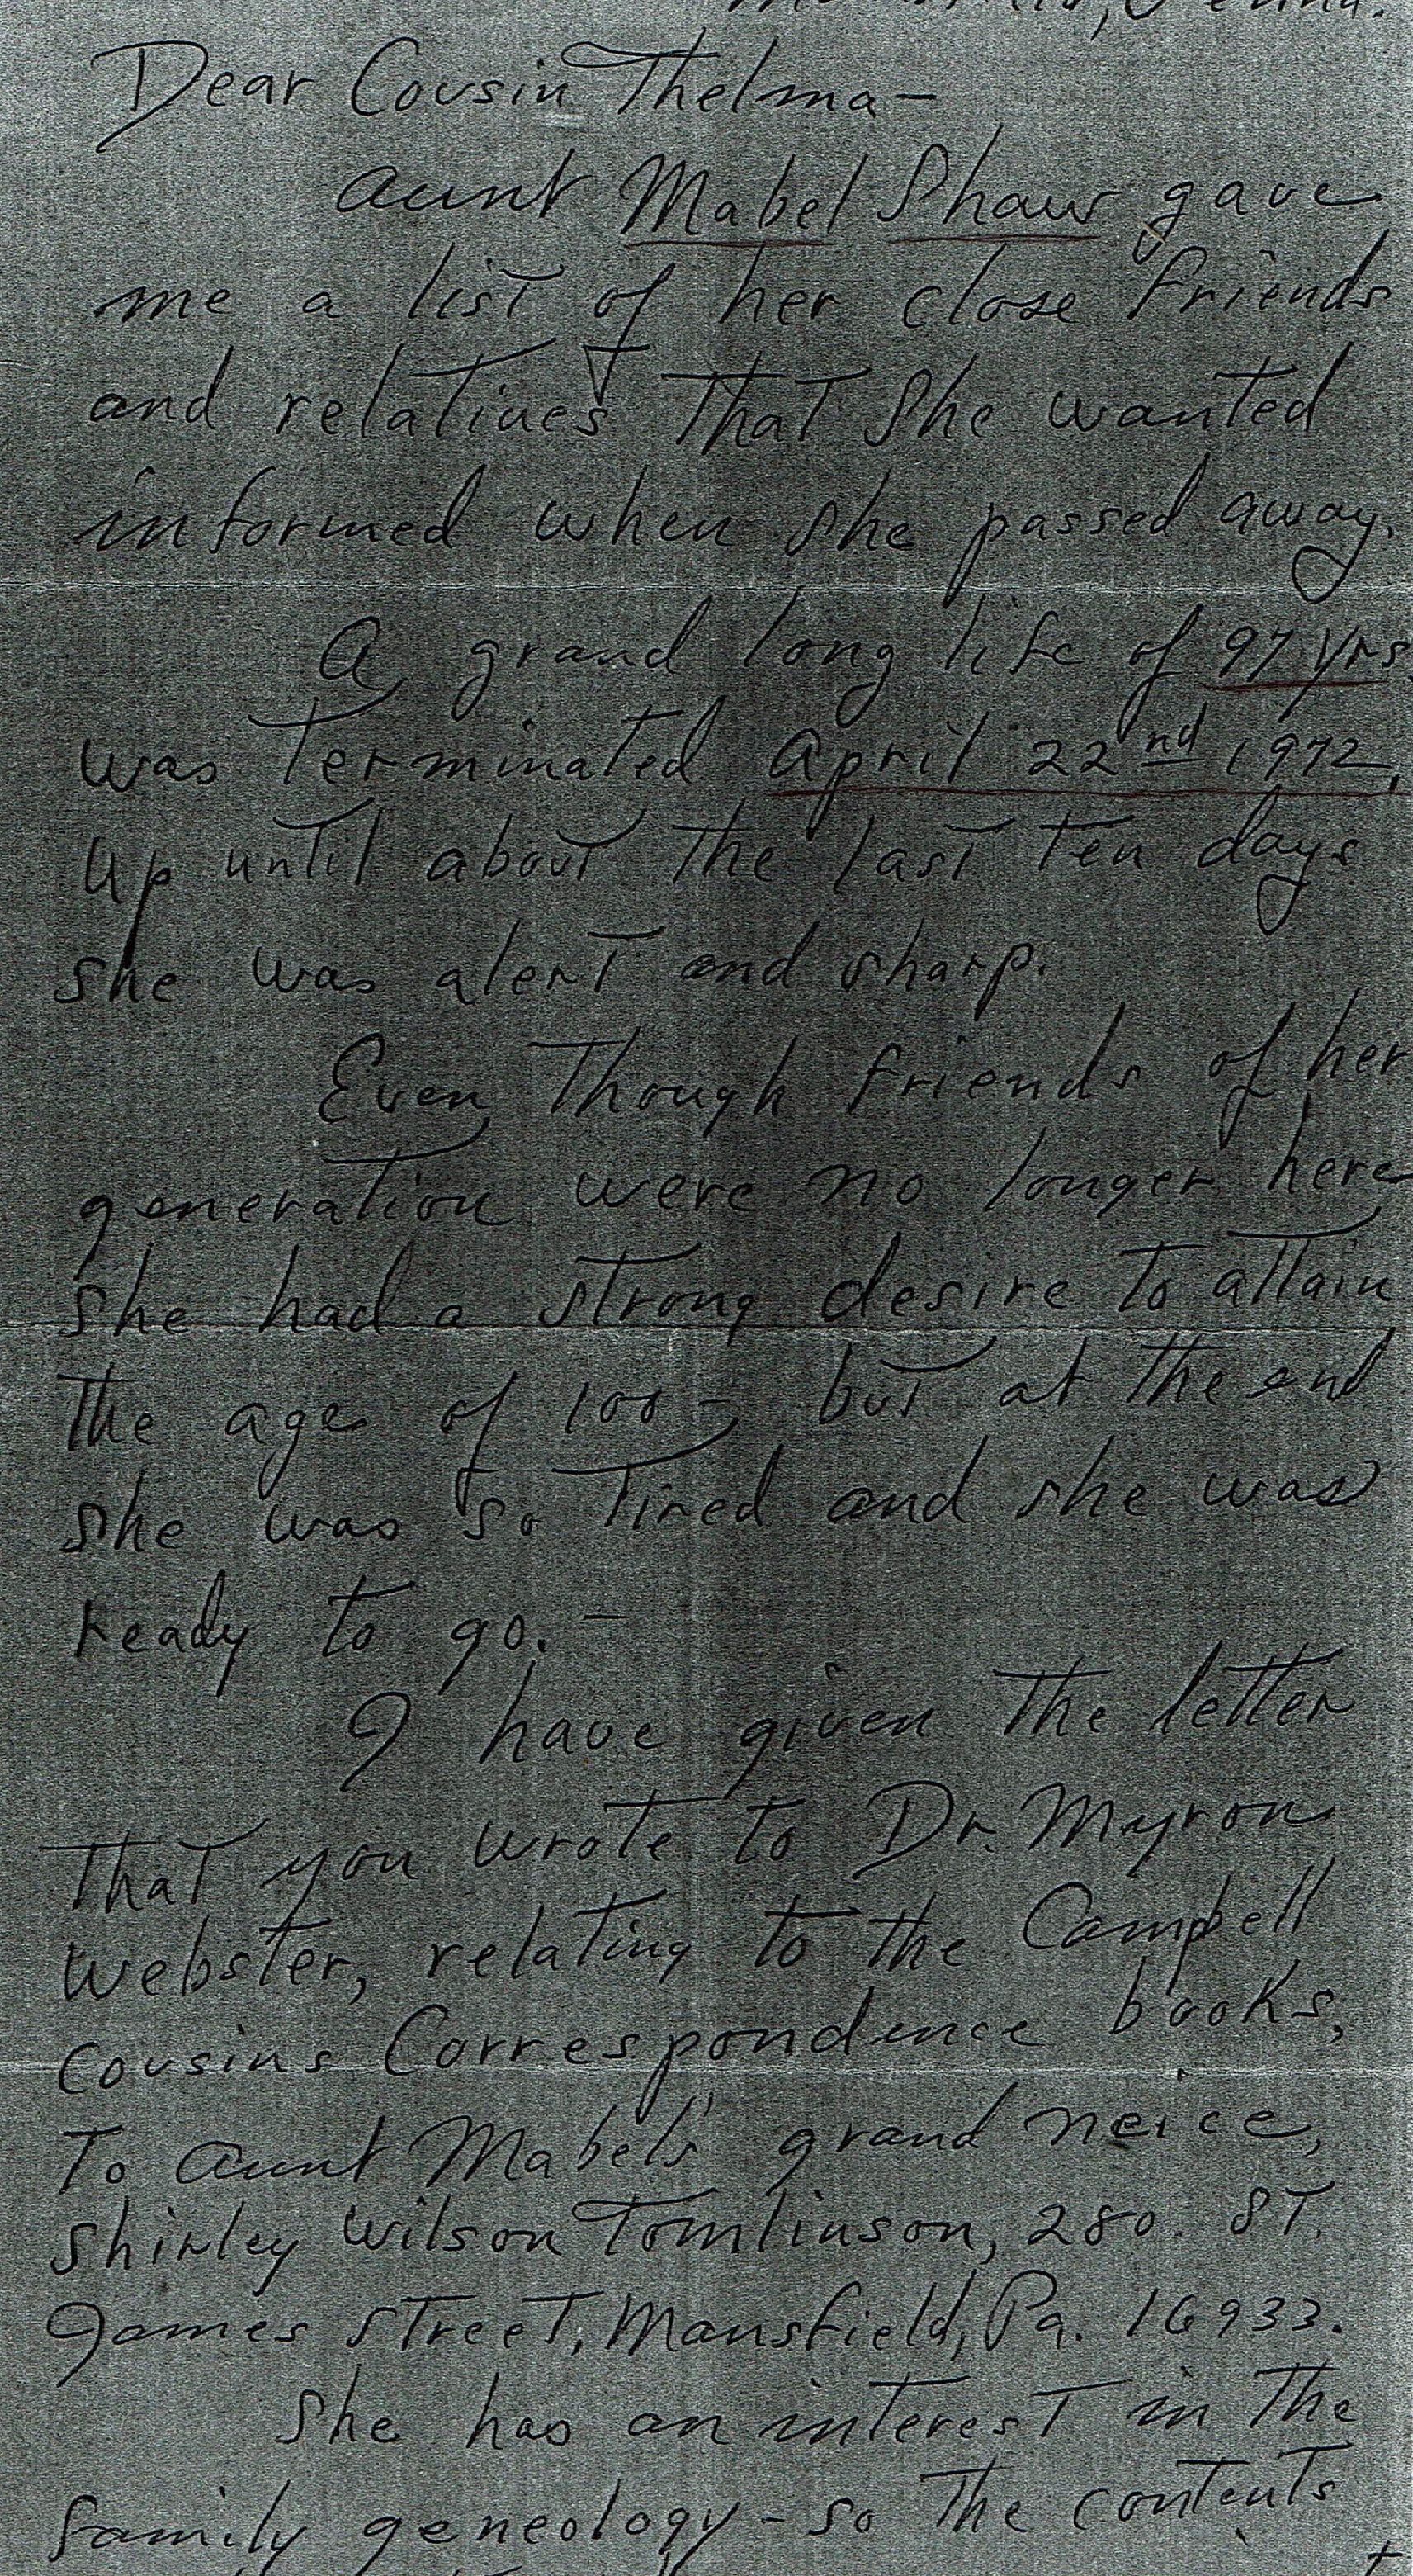 Penna.
Dear Cousin Thelma—
Aunt Mabel Shaw gave
me a list of her close friends
and relatives that she wanted
informed when she passed away.
A grand long life of 97 yrs.
was terminated April 22nd 1972.
Up until about the last ten days
she was alert and sharp.
Even though friends of her
generation were no longer here
she had a strong desire to attain
the age of 100 -, but at the end
she was so tired and she was
ready to go. —
I have given the letter
that you wrote to Dr. Myron
Webster, relating to the Campbell
Cousins Correspondence books,
To Aunt Mabel's grand neice,
Shirley Wilson Tomlinson, 280. St.
James Street, Mansfield, Pa. 16933.
She has an interest in the
family geneology - so the contents